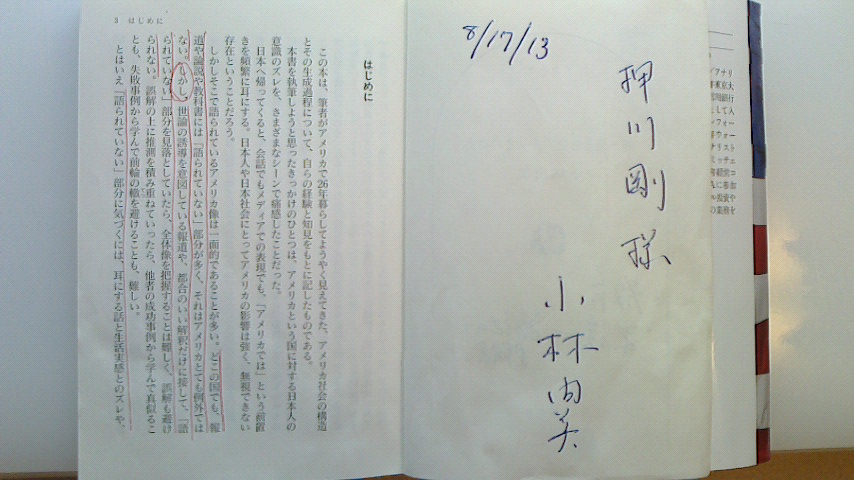 8/17/13
押川剛様
小林由美
3 はじめに
はじめに
この本は、筆者がアメリカで26年暮らしてようやく見えてきた、アメリカ社会の構造
とその生成過程について、自らの経験と知見をもとに記したものである。
本書を執筆しようと思ったきっかけのひとつは、アメリカという国に対する日本人の
意識のズレを、さまざまなシーンで痛感したことだった。
日本へ帰ってくると、会話でもメディアでの表現でも、「アメリカでは」という前置
きを頻繁に耳にする。日本人や日本社会にとってアメリカの影響は強く、無視できない
存在ということだろう。
しかしそこで語られているアメリカ像は一面的であることが多い。どこの国でも、報
道や論説や教科書には「語られていない」部分が多く、それはアメリカとても例外では
ない。しかし、世論の誘導を意図している報道や、都合のいい解釈だけに接して、「語
られていない」部分を見落としていたら、全体像を把握することは難しく、誤解も避け
られない。誤解の上に推測を積み重ねていったら、他者の成功事例から学んで真似るこ
とも、失敗事例から学んで前輪の轍を避けることも、難しい。
とはいえ「語られていない」部分に気づくには、耳にする話と生活実感とのズレや、
アナリ
東京大
銀行
して入
フォー
ウォー
ナリスト
ミッチェ
経営コ
に参加
ル投資や
の業務を